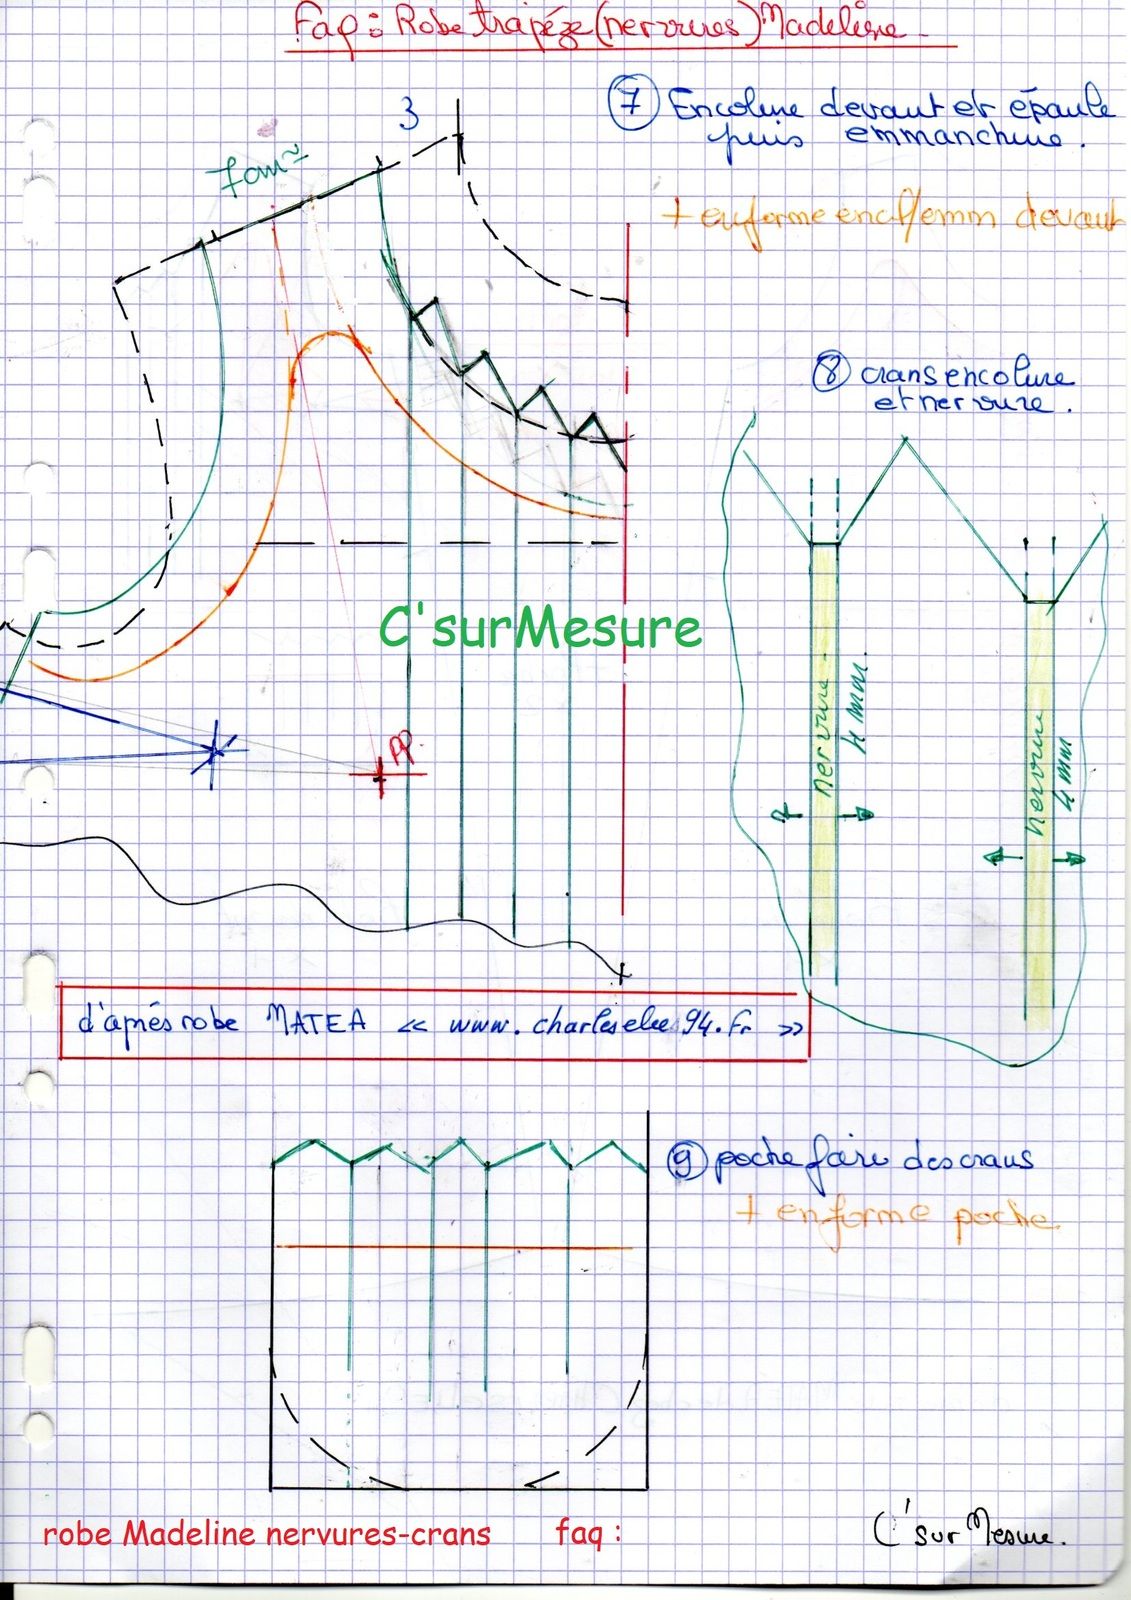 Faq : Robe trapéze (nervures) Madeline
7 Encolure devant et épaule
puis emmanchure.
3
7cm
+ enforme enc/emm devant
8 crans encolure
et nervure.
C'surMesure
nervure
4 mm.
nervure
4 mm
PP.
d'aprés robe MATEA << www.charleselie94.fr >>
9 poche faire des crans
+ enforme poche
robe Madeline nervures-crans faq :
C'sur Mesure.